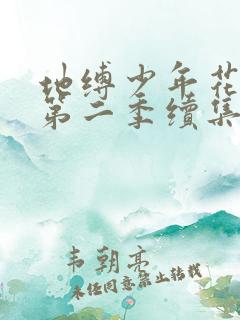 地缚少年花
第二季续集
韦朝亮
未经同意禁止转载